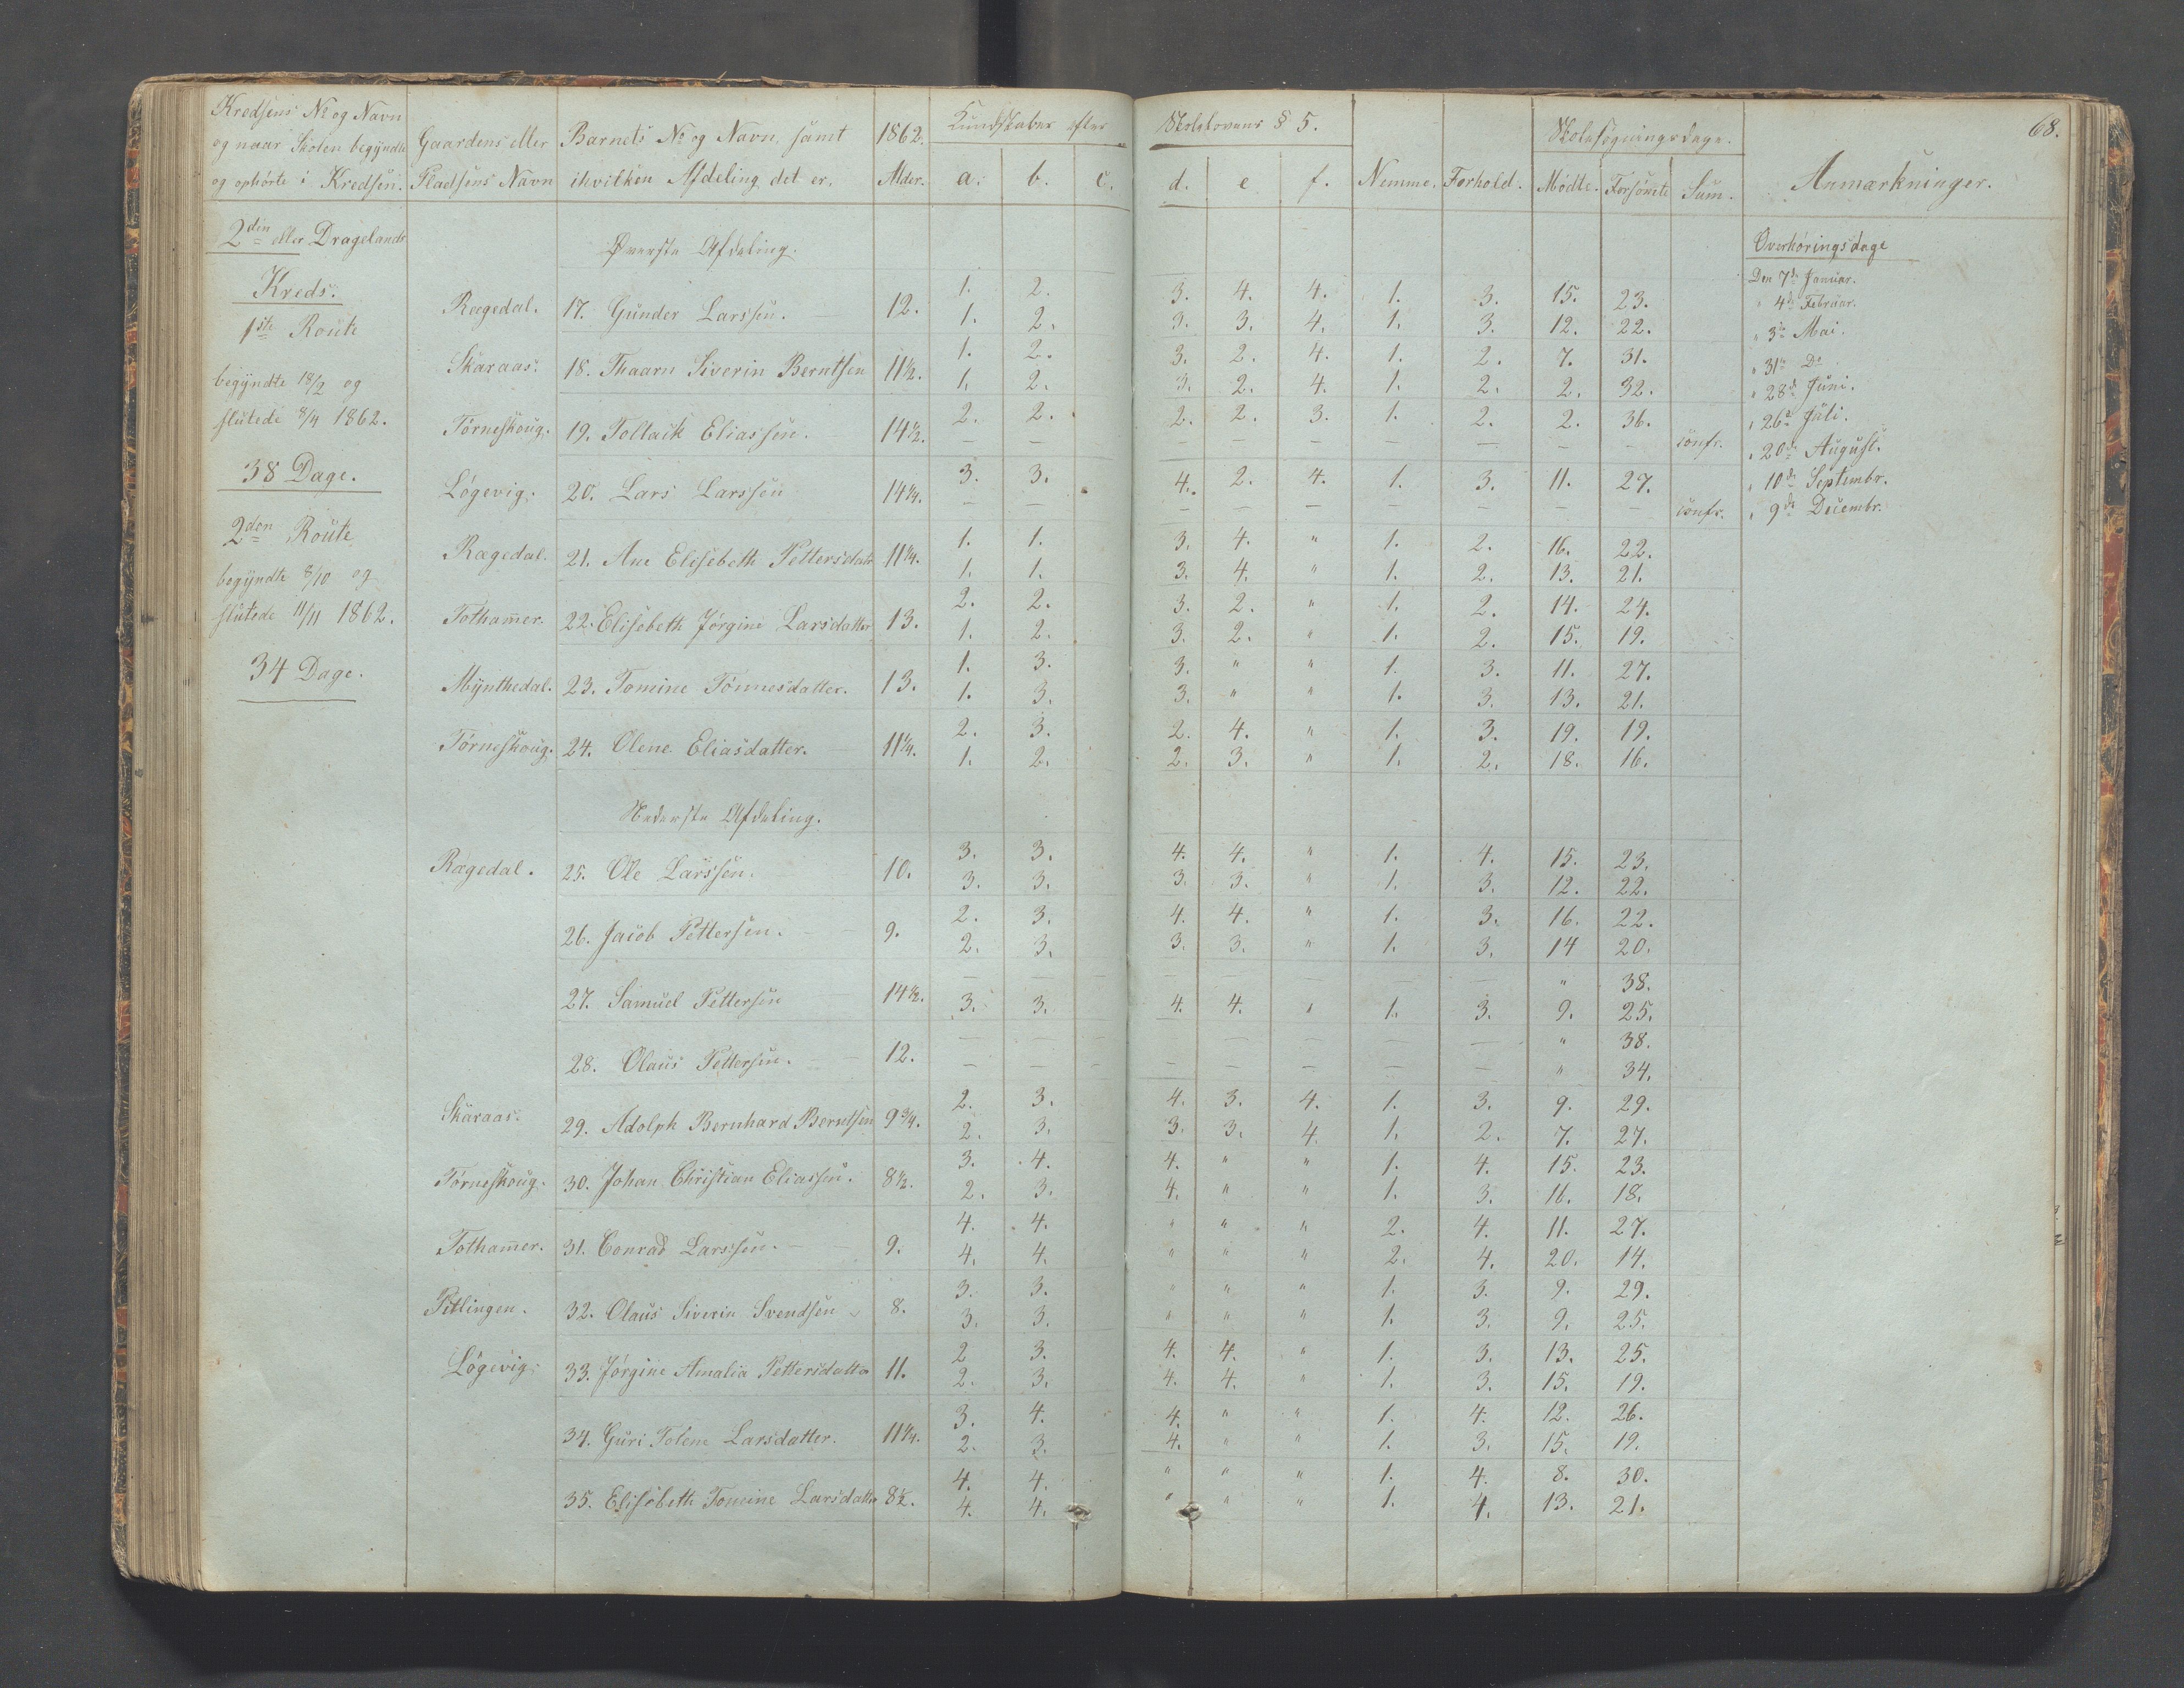 68.
Kredsens No og Navn
og naar Skolen begyndte
og ophørte i Kredsen.
Gaardens eller
Pladsens Navn
Barnets No og Navn, samt
ihvilken Afdeling det er.
1862.
Alder.
Kundskaber efter Skolelovens § 5.
a. b. c. d. e f. Nemme. Forhold.
Skolesøgningsdage.
Mødte. Forsømte Sum.
Anmærkninger.
2den eller Dragelands
Kreds.
1ste Route
begyndte 18/2 og
sluttede 8/4 1862.
38 Dage.
2den Route
begyndte 8/10 og
sluttede 11/11 1862.
34 Dage.
Øverste Afdeling.
Rægedal. 17. Gunder Larssen. 12. 1. 2. 3. 4. 4. 1. 3. 15. 23.
1. 2. 3. 3. 4. 1. 3. 12. 22.
Skaraas. 18. Thaarn Siverin Berntsen 11½. 1. 2. 3. 2. 4. 1. 2. 7. 31.
1. 2. 3. 2. 4. 1. 2. 2. 32.
Tørneskoug. 19. Tollaik Eliassen. 14½. 2. 2. 2. 2. 3. 1. 2. 2. 36.
— — — — — — — — — confr.
Løgevig. 20. Lars Larssen 14¼. 3. 3. 4. 2. 4. 1. 3. 11. 27.
— — — — — — — — — confr.
Rægedal. 21. Ane Elisebeth Pettersdatr 11¼. 1. 1. 3. 4. " 1. 2. 16. 22.
1. 1. 3. 4. " 1. 2. 13. 21.
Tothamer. 22. Elisebeth Jørgine Larsdatter 13. 2. 2. 3. 2. " 1. 2. 14. 24.
1. 2. 3. 2. " 1. 2. 15. 19.
Mynthedal. 23. Tomine Tønnesdatter. 13. 1. 3. 3. " " 1. 3. 11. 27.
1. 3. 3. " " 1. 3. 13. 21.
Tørneskoug. 24. Olene Eliasdatter. 11¼. 2. 3. 2. 4. " 1. 3. 19. 19.
1. 2. 2. 3. " 1. 2. 18. 16.
Nederste Afdeling.
Rægedal. 25. Ole Larssen. 10. 3. 3. 4. 4. " 1. 4. 15. 23.
3. 3. 3. 3. " 1. 3. 12. 22.
26. Jacob Pettersen. 9. 2. 3. 4. 4. " 1. 3. 16. 22.
2. 3. 3. 3. " 1. 3. 14 20.
27. Samuel Pettersen 14½. — — — — — — — " 38.
3. 3. 4. 4. " 1. 3. 9. 25.
28. Olaus Pettersen. 12. — — — — — — — " 38.
— — — — — — — — " 34.
Skaraas. 29. Adolph Bernhard Berntsen 9¾. 2. 3. 4. 3. 4. 1. 3. 9. 29.
2. 3. 3. 3. 4. 1. 2. 7. 27.
Tørneskoug. 30. Johan Christian Eliassen. 8½. 3. 4. 4. " " 1. 4. 15. 23.
2. 3. 4. " " 1. 3. 16. 18.
Tothamer. 31. Conrad Larssen. 9. 4. 4. " " " 2. 4. 11. 27.
4. 4. " " " 2. 4. 20. 14.
Pitlingen. 32. Olaus Siverin Svendsen 8. 3. 3. " " " 1. 3. 9. 29.
3. 3. " " " 1. 3. 9. 25.
Løgevig. 33. Jørgine Amalia Pettersdatter 11. 2 3. 4. 4. " 1. 3. 13. 25.
2. 3. 4. 4. " 1. 3. 15. 19.
34. Guri Tolene Larsdatter. 11¼. 3. 4. 4. " " 1. 4. 12. 26.
2. 3. 4. " " 1. 3. 15. 19.
35. Elisebeth Tomine Larsdatter 8½. 4. 4. " " " 1. 4. 8. 30.
4. 4. " " " 1. 4. 13. 21.
Overhøringsdage
Den 7de Januar.
" 4de Februar.
" 3die Mai.
" 31te Do
" 28de Juni.
" 26de Juli.
" 20de August.
" 10de Septembr.
" 9de Decembr.